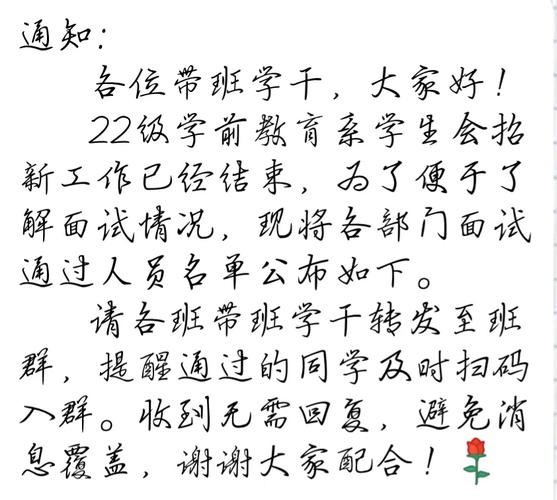 通知：
各位带班学干，大家好！
22级学前教育系学生会招
新工作已经结束，为了便于了
解面试情况，现将各部门面试
通过人员名单公布如下。
请各班带班学干转发至班
群，提醒通过的同学及时扫码
入群。收到无需回复，避免消
息覆盖，谢谢大家配合！🌹